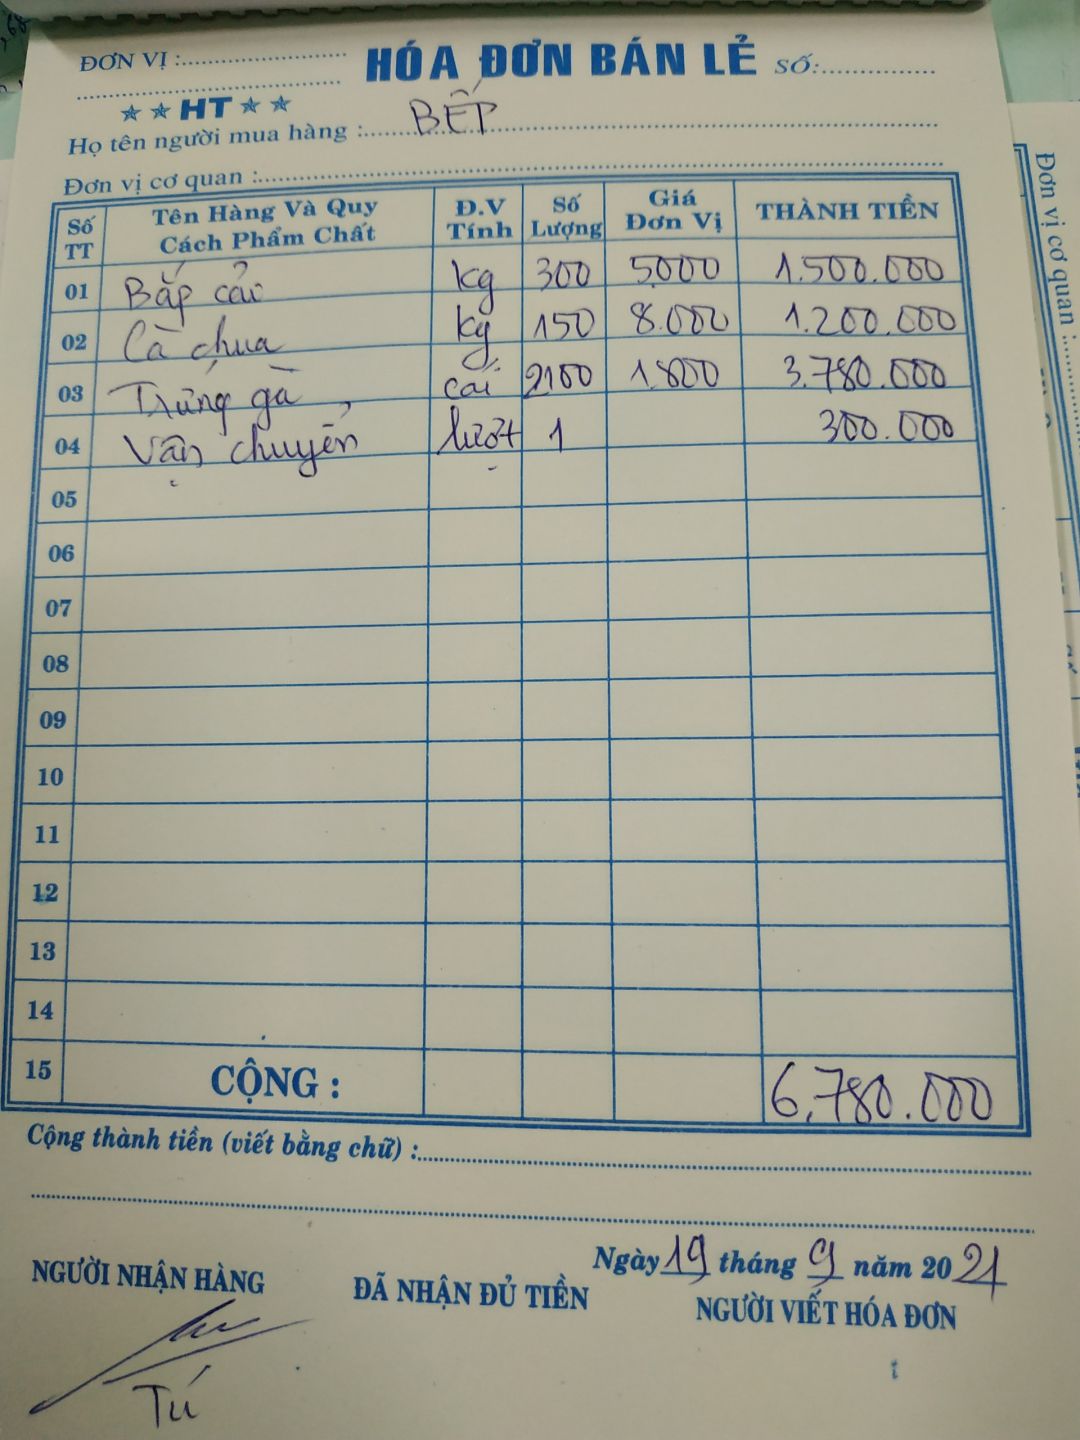 ĐƠN VỊ :
HÓA ĐƠN BÁN LẺ SỐ:
HT
Họ tên người mua hàng : BẾP
Đơn vị cơ quan :
Số TT Tên Hàng Và Quy Cách Phẩm Chất Đ.V Tính Số Lượng Giá Đơn Vị THÀNH TIỀN
01 Bắp cải kg 300 5.000 1.500.000
02 Cà chua kg 150 8.000 1.200.000
03 Trứng gà cái 2100 1.800 3.780.000
04 Vận chuyển lượt 1 300.000
05
06
07
08
09
10
11
12
13
14
15 CỘNG : 6.780.000
Cộng thành tiền (viết bằng chữ) :
Ngày 19 tháng 9 năm 2021
NGƯỜI NHẬN HÀNG ĐÃ NHẬN ĐỦ TIỀN NGƯỜI VIẾT HÓA ĐƠN
Tú
Đơn vị cơ quan :